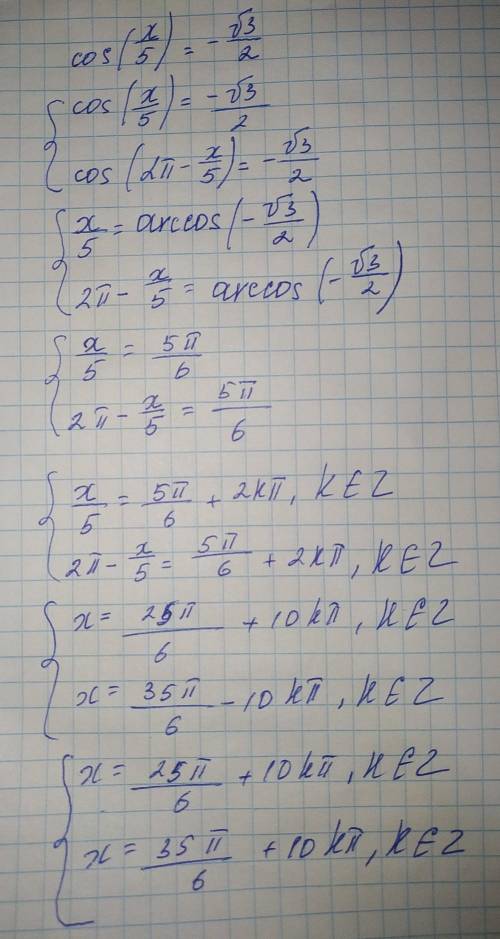 cos(x/5) = -√3/2
cos(x/5) = -√3/2
cos(2π - x/5) = -√3/2
x/5 = arccos(-√3/2)
2π - x/5 = arccos(-√3/2)
x/5 = 5π/6
2π - x/5 = 5π/6
x/5 = 5π/6 + 2kπ, k∈Z
2π - x/5 = 5π/6 + 2kπ, k∈Z
x = 25π/6 + 10kπ, k∈Z
x = 35π/6 - 10kπ, k∈Z
x = 25π/6 + 10kπ, k∈Z
x = 35π/6 + 10kπ, k∈Z